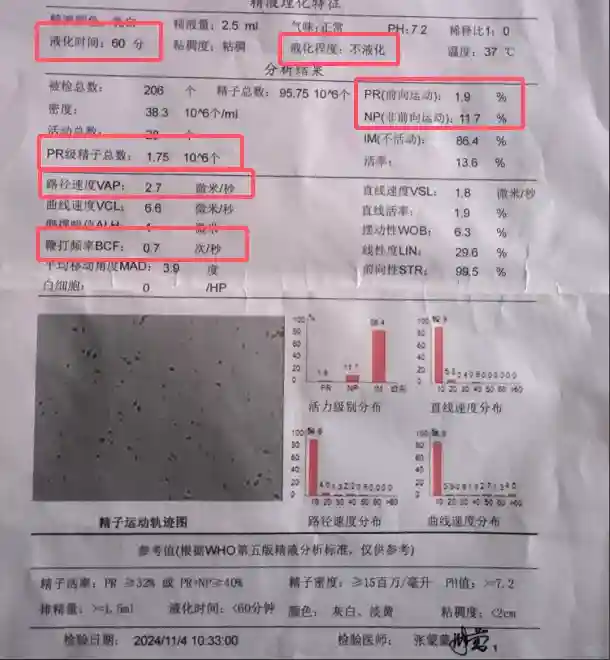 精液理化特征
精液量：2.5 ml 气味：正常 PH：7.2 稀释比1：0
液化时间：60 分 粘稠度：粘稠 液化程度：不液化 温度：37 ℃
分析结果
被检总数： 206 个 精子总数：95.75 10^6个 PR(前向运动)： 1.9 %
密度： 38.3 10^6个/ml NP(非前向运动)：11.7 %
活动总数： 28 个 IM(不活动)： 86.4 %
PR级精子总数：1.75 10^6个 活率： 13.6 %
路径速度VAP： 2.7 微米/秒 直线速度VSL： 1.8 微米/秒
曲线速度VCL： 6.6 微米/秒 直线活率： 1.9 %
摆动性WOB： 6.3 %
鞭打频率BCF： 0.7 次/秒 线性度LIN： 29.6 %
平均移动角度MAD： 3.9 度 前向性STR： 99.5 %
白细胞： 0 /HP
活力级别分布 直线速度分布
路径速度分布 曲线速度分布
精子运动轨迹图
参考值(根据WHO第五版精液分析标准，仅供参考)
精子活率：PR ≥32% 或 PR+NP≥40% 精子密度：≥15百万/毫升 PH值：>=7.2
排精量：>=1.5ml 液化时间：<60分钟 颜色： 灰白、淡黄 粘稠度：<2cm
检验日期： 2024/11/4 10:33:00 检验医师：